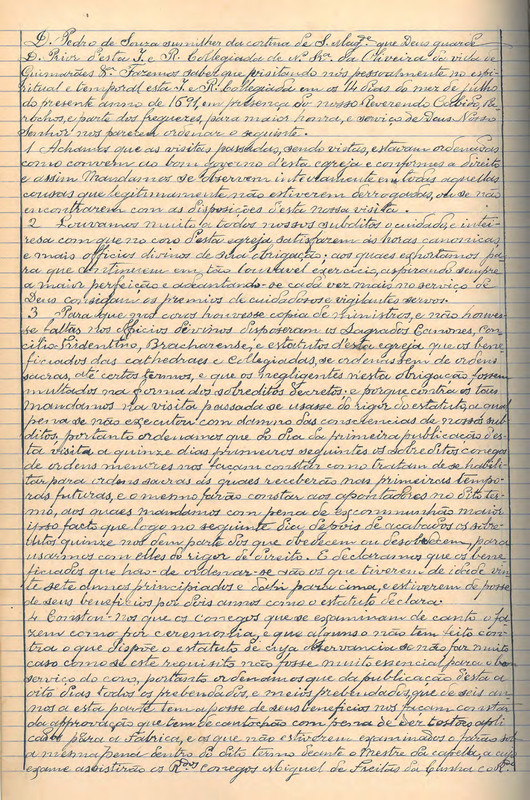 D. Pedro de Souza sumilher da cortina de S. Mag.de que Deus guarde
D. Prior d'esta I. e R. Collegiada de N. Sr.a da Oliveira da villa de
Guimarães &. Fazemos saber que visitando nós pessoalmente no espi-
ritual e temporal esta I. e R. Collegiada em os 14 dias do mez de julho
do presente anno de 1691, em presença do nosso Reverendo Cabido, Pa-
rochos, e parte dos freguezes, para maior honra, e serviço de Deus Nosso
Senhor nos pareceu ordenar o seguinte.
1 Achamos que as visitas passadas, sendo vistas, estavam ordenadas
como convem ao bom governo d'esta egreja e conformes a direito
e assim Mandamos se observem inteiramente em todas aquellas
cousas que legitimamente não estiverem derrogadas, ou se não
encontrarem com as disposições d'esta nossa visita.
2 Louvamos muito a todos nossos subditos o cuidado, e intei-
resa com que no coro d'esta egreja satisfazem ás horas canonicas,
e mais officios divinos de sua obrigação; aos quaes exhortamos pa-
ra que continuem em tão louvavel exercicio, aspirando sempre
a maior perfeição e adeantando-se cada vez mais no serviço de
Deus consigam os premios de cuidadosos e vigilantes servos.
3 Para que nos coros houvesse copia de ministros, e não houves-
se faltas nos officios divinos disposeram os Sagrados Canones, Con-
cilio Tridentino, Bracharense, e estatutos d'esta egreja que os bene-
ficiados das cathedraes e Collegiadas, se ordenassem de ordens
sacras, até certos termos, e que os negligentes nesta obrigação fossem
multados na forma dos sobreditos decretos: e porque contra os taes
mandamos na visita passada se usasse do rigor do estatuto, a qual
pena se não executou com damno das consciencias de nossos sub-
ditos, portanto ordenamos que do dia da primeira publicação des-
ta visita a quinze dias primeiros seguintes os sobreditos conegos
de ordens menores nos façam constar como tratam de se habili-
tar para ordens sacras ás quaes receberão nas primeiras tempo-
ras futuras, e o mesmo farão constar aos apontadores no dito ter-
mo, aos quaes mandamos com pena de Excommunhão maior
ipso facto que logo no seguinte dia depois de acabados os sobre-
ditos quinze nos dem parte dos que obedecem ou desobedecem, para
usarmos com elles do rigor de direito. E declaramos que os bene-
ficiados que hão-de ordenar-se são os que tiverem de idade vin-
te sete annos principiados e d'ahi para cima, e estiverem de posse
de seus beneficios por dois annos como o estatuto declara.
4 Constou-nos que os conegos que se examinam de canto o fa-
zem como por ceremonia, e que alguns o não tem feito con-
tra o que dispõe o estatuto de cuja observancia se não faz muito
caso como se este requisito não fosse muito essencial para o bom
serviço do coro, portanto ordenamos que da publicação d'esta a
oito dias todos os prebendados, e meios prebendados, que de seis an-
nos a esta parte tem a posse de seus beneficios nos façam constar
da approvação que tem de cantochão com pena de dez tostões apli-
cados para a Fabrica, e os que não estiverem examinados o farão sob
a mesma pena dentro do dito termo deante o Mestre da capella, a cujo
exame assistirão os R.dos Conegos Miguel de Freitas da Cunha e o R.do